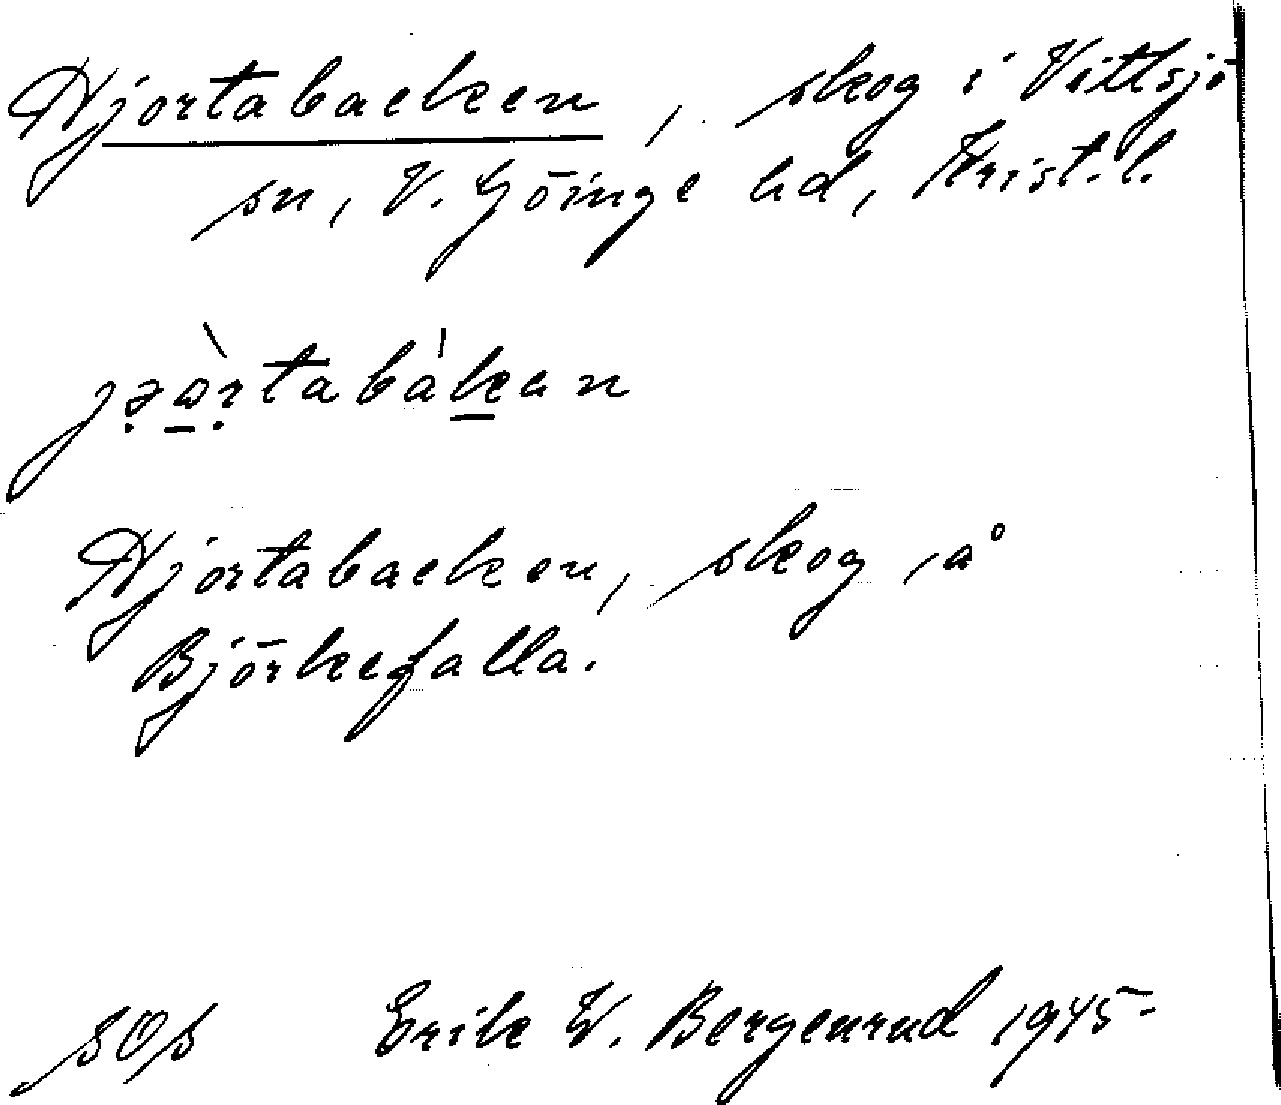 Hjortabacken, skog i Vittsjö
sn, V. Göinge hd, Krist. l.
jə̣ò̱ṛtabàḵan
Hjortabacken, skog å
Björkefalla.
Erik W. Bergenrud 1945